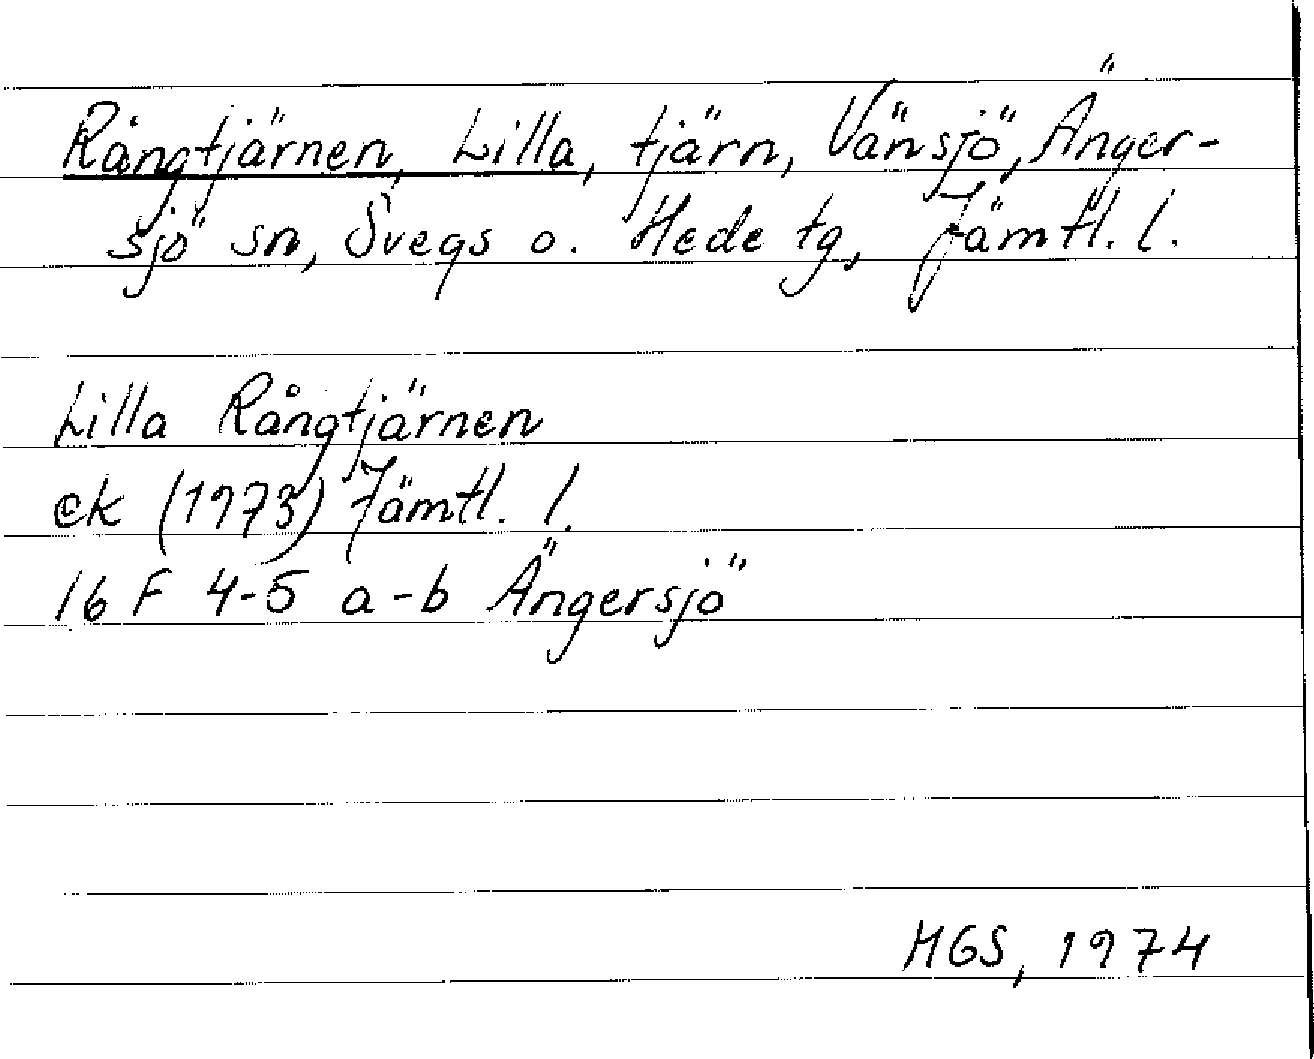 Rångtjärnen, Lilla, tjärn, Vänsjö, Änger-
sjö sn, Svegs o. Hede tg, Jämtl. l.
Lilla Rångtjärnen
ek (1973) Jämtl. l.
16 F 4-5 a-b Ängersjö
MGS, 1974